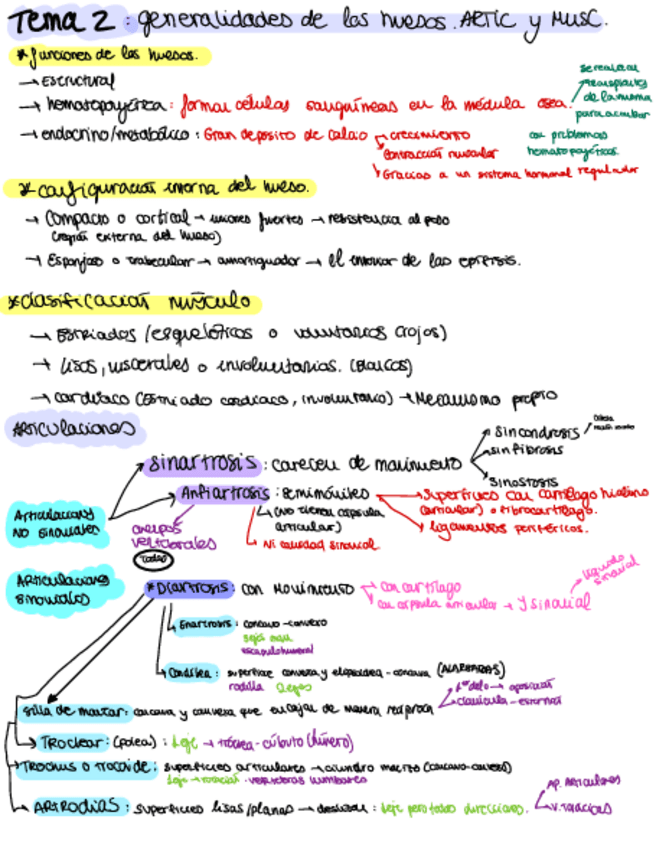 Tema 2: generalidades de los huesos. ARTIC y MUSC.
* funciones de los huesos.
→ Estructural
→ hematopoyética: formar células sanguíneas en la médula ósea.
se realizan
transplantes
de la misma
para acabar
con problemas
hematopoyéticos.
→ endocrino/metabólico: Gran deposito de calcio
→ crecimiento
contracción muscular
→ Gracias a un sistema hormonal regulador
* configuración interna del hueso.
→ Compacto o cortical → uniones fuertes → resistencia al peso
(región externa del hueso)
→ Esponjoso o trabecular → amortiguador → el interior de las epífisis.
* clasificación músculo
→ Estriados (esqueléticos o voluntarios (rojos)
→ lisos, viscerales o involuntarios. (Blancos)
→ cardíaco (Estriado cardíaco, involuntario) → Mecanismo propio
ARTICULACIONES
Sinartrosis: carecen de movimiento
Sincondrosis
sinfibrosis
Sinostosis
Articulaciones
NO sinoviales
Anfiartrosis: Semimóviles
→ (No tienen cápsula
articular)
→ Ni cavidad sinovial
→ superficies con cartílago hialino
(articular) o fibrocartílago.
→ ligamentos periféricos.
cuerpos
vertebrales
todas
Articulaciones
sinoviales
* Diartrosis: con movimiento
→ con cartílago
→ con cápsula articular → y sinovial
líquido
sinovial
→ Enartrosis: concavo-convexo
escapulohumeral
→ Condílea: superficie convexa y elipsoidea-concava (ALARGADAS)
rodilla 2 ejes
silla de montar: concava y convexa que encajan de manera recíproca
1º dedo → oposición
clavícula-esternon
→ TROCLEAR: (polea): 1 eje → tróclea-cúbito (húmero)
→ TROCHUS o trocoide: superficies articulares → cilindro macizo (concavo-convexo)
1 eje → rotación - vertebras lumbares
→ ARTRODIAS: superficies lisas/planas → deslizan: 1 eje pero todas direcciones.
AP. Articulares